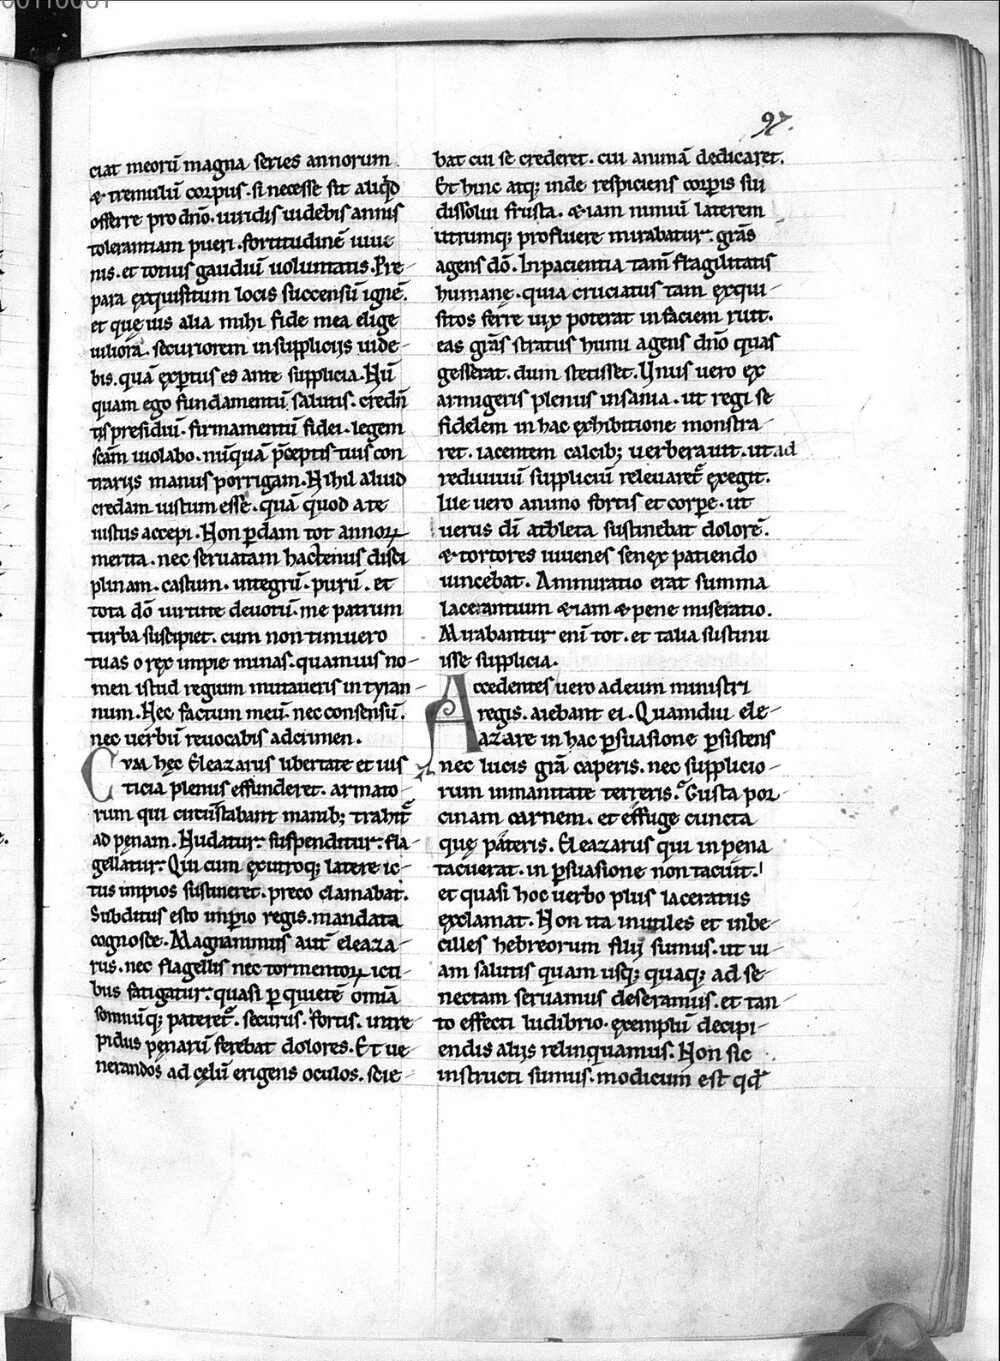 97.
ciat meorū magna series annorum
& tremulū corpus. si necesse sit aliq̄d
offerre pro dn̄o. uiridis uidebis annis
tolerantiam pueri. fortitudinē iuue
nis. et totius gaudiū uoluntatis. Pre
para ęxquisitum locis succensū ignē.
et quę uis alia mihi fide mea elige
uiliora. securiorem in supplicijs uide-
bis. quā exp̄tus es ante supplicia. Nū
quam ego fundamentū salutis. credn̄
tis presidiū. firmamentū fidei. legem
sc̄am uiolabo. nūquā p̄ceptis tuis con
trarijs manus porrigam. Nihil aliud
credam iustum esse. quā quod a te
iustus accepi. Non p̄dam tot annoꝝ
merita. nec seruatam hactenus disci
plinam. castum. integrū. purū. et
tota dō uirtute deuotū. me patrum
turba suscipiet. cum non timuero
tuas o rex impie minas. quamuis no-
men istud regium mutaueris in tyran-
num. Nec factum meū. nec consensū.
nec uerbū reuocabis ad crimen.
Cum hęc Eleazarus libertate et ius
ticia plenus effunderet. armato-
rum qui circūstabant manib; trahit᷑
ad penam. Nudatur. suspenditur. fla-
gellatur. Qui cum ex utroq; latere ic-
tus impios sustineret. preco clamabat.
Subditus esto imp̄io regis. mandata
cognosce. Magnanimus aut̄ eleaza-
rus. nec flagellis nec tormentoꝝ icti-
bus fatigatur. quasi p̄ quietē om̄ia
somnūq; pateret᷑. securus. fortis. intre
pidus pęnarū ferebat dolores. Et ue-
nerandos ad cęlū erigens oculos. scie-
bat cui se crederet. cui animā dedicaret.
Et hinc atq; inde respiciens corp̄is sui
dissolui frusta. & iam nimiū laterem
utrumq; profluere mirabatur. grās
agens dō. Inpacientia tam̄ fragilitatis
humanę. quia cruciatus tam ęxqui-
sitos ferre uix poterat in faciem ruit.
eas grās stratus humi agens dn̄o quas
gesserat. dum stetisset. Unus uero ex
armigeris plenus insania. ut regi se
fidelem in hac exhibitione monstra-
ret. iacentem calcib; uerberauit. ut ad
rediuiuū suppliciū releuaret᷑ exegit.
Ille uero animo fortis et corp̄e. ut
uerus dī athleta sustinebat dolorē.
& tortores iuuenes senex patiendo
uincebat. Ammiratio erat summa
lacerantium & iam & pene miseratio.
Mirabantur enī tot. et talia sustinu
isse supplicia.
Accedentes uero ad eum ministri
regis. aiebant ei. Quamdiu ele-
azare in hac p̄suasione p̄sistens
nec lucis grā caperis. nec supplicio-
rum inmanitate terreris. Gusta por-
cinam carnem. et effuge cuncta
quę pateris. Eleazarus qui in pena
tacuerat. in p̄suasione non tacuit.
et quasi hoc uerbo plus laceratus
exclamat. Non ita inutiles et inbe-
cilles hebreorum filij sumus. ut ui-
am salutis quam usq; quaq; ad se-
nectam seruamus deseramus. et tan-
to effecti ludibrio. exemplū decipi-
endis alijs relinquamus. Non sic
instructi sumus. modicum est qd̄